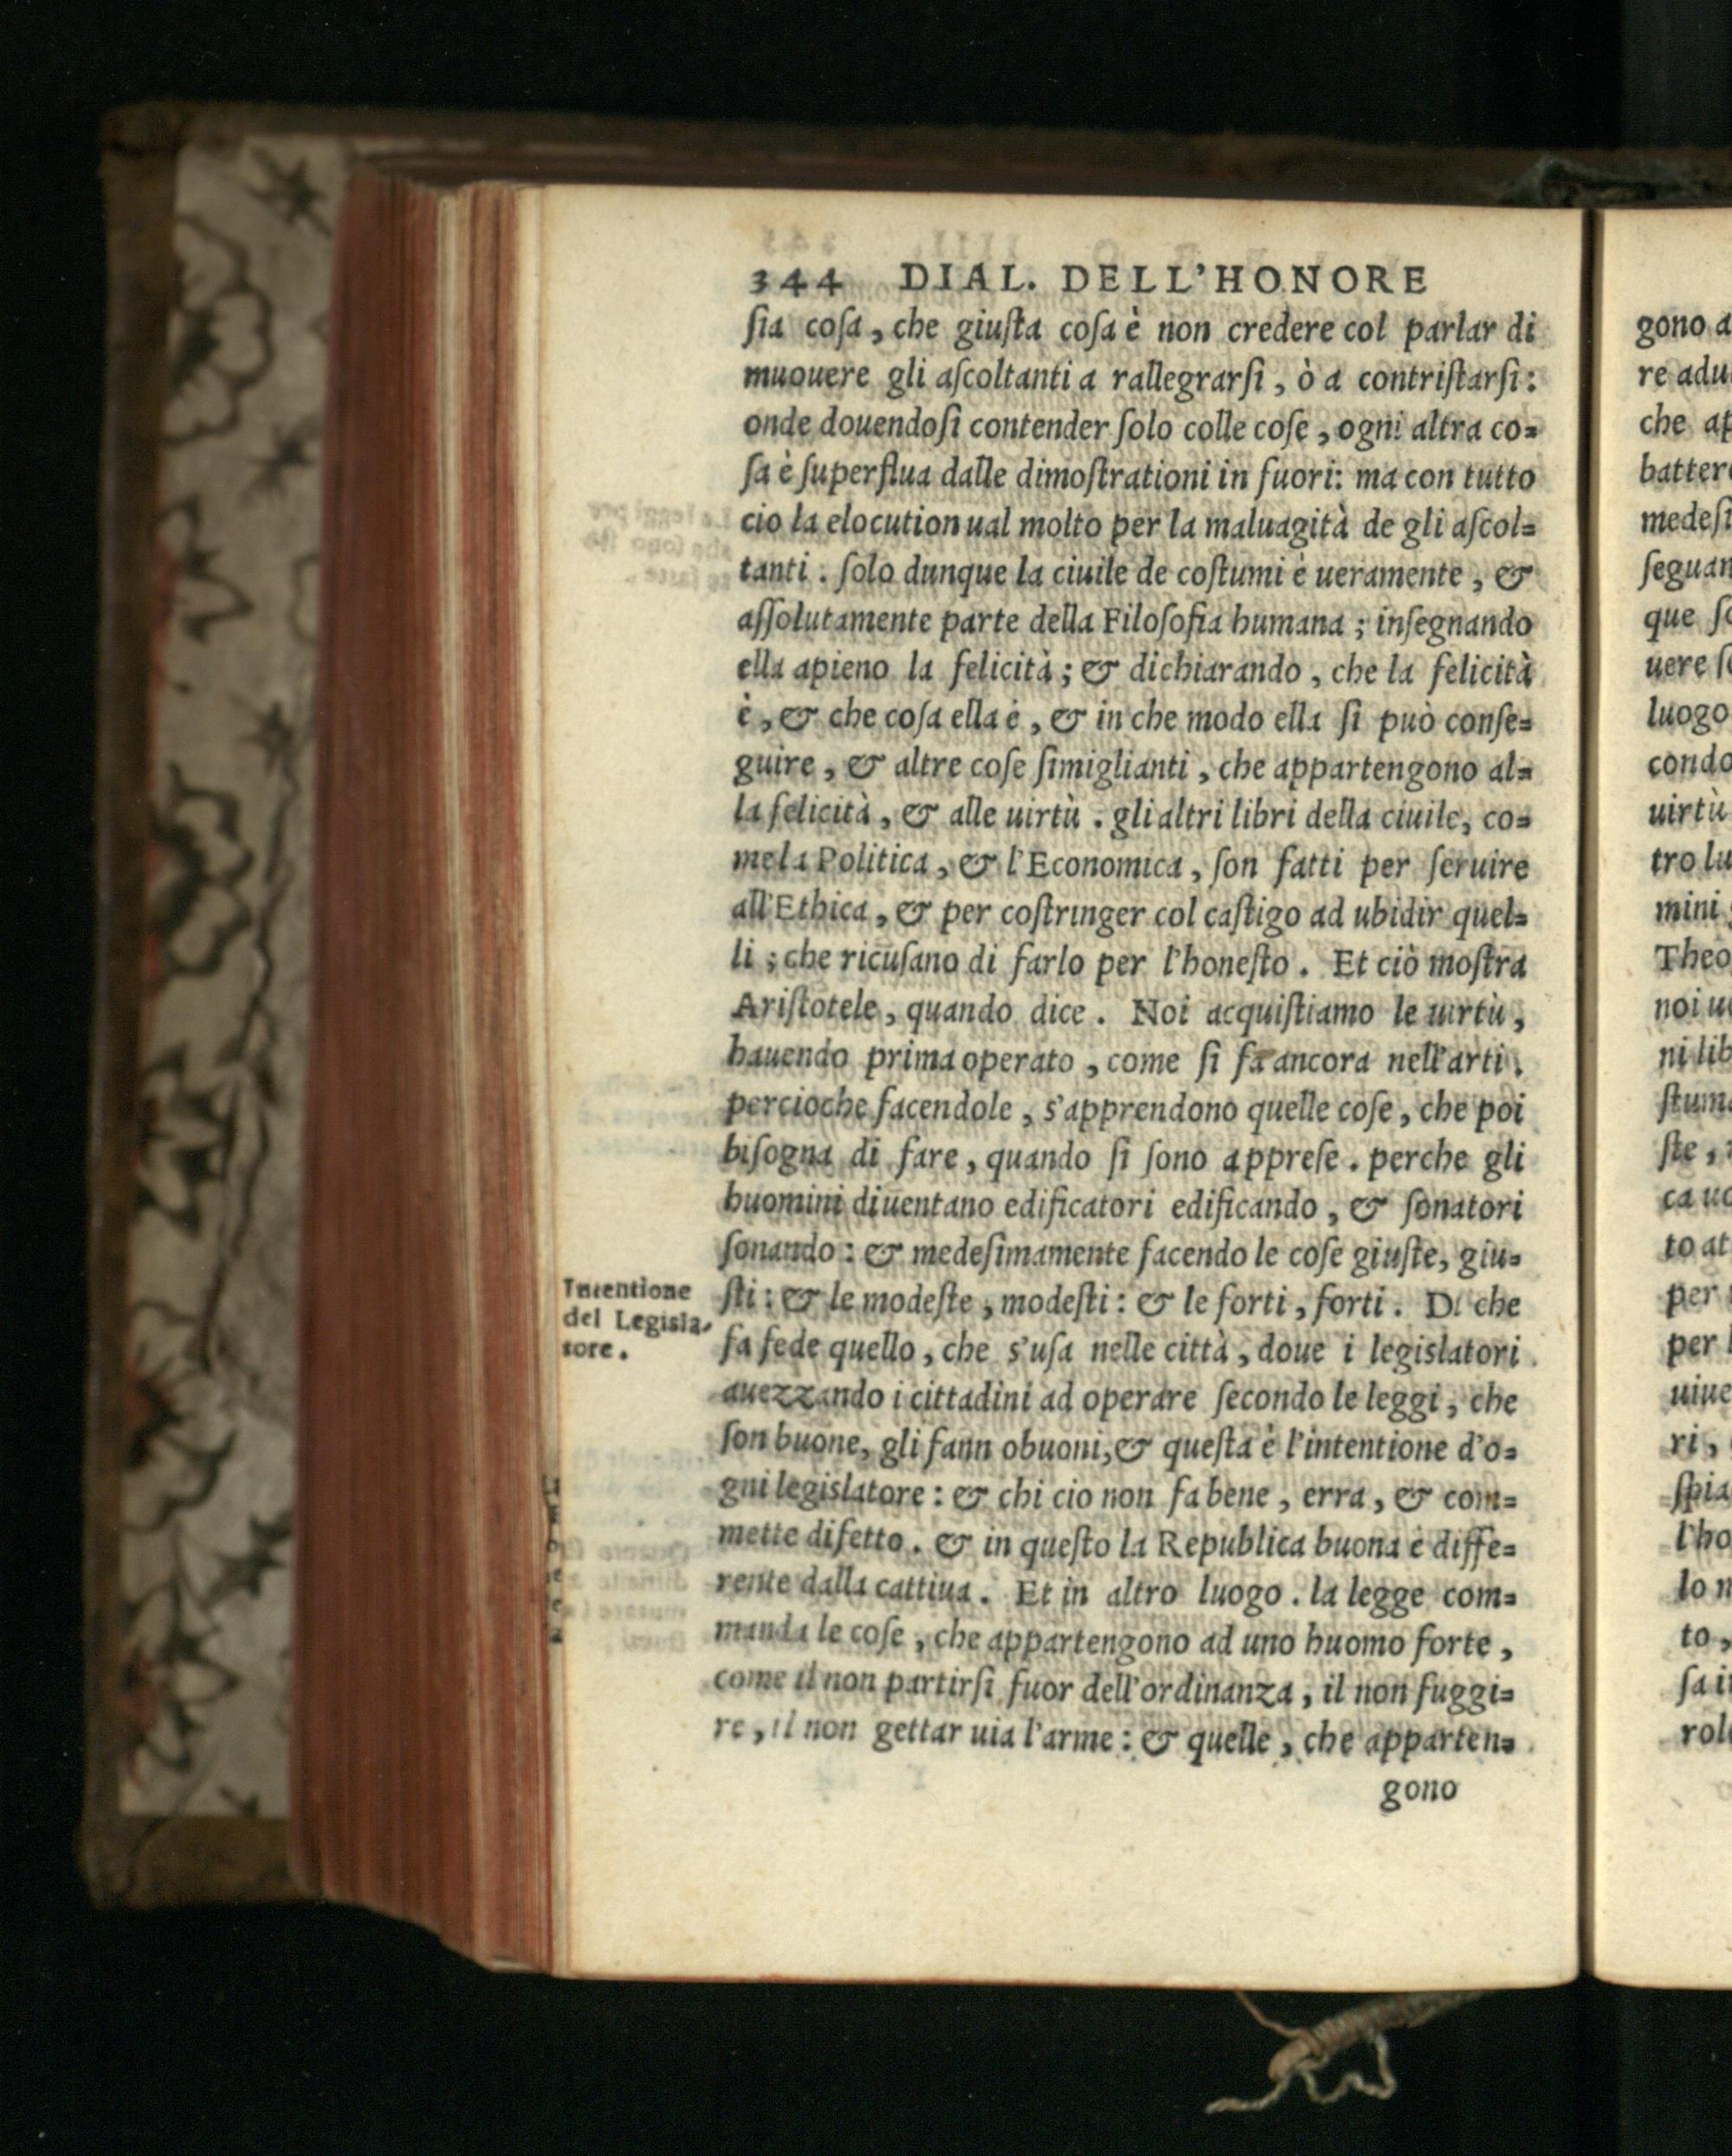 344 DIAL. DELL'HONORE
ſia coſa, che giuſta coſa è non credere col parlar di
muouere gli aſcoltanti a rallegrarſi, ò a contriſtarſi:
onde douendoſi contender ſolo colle coſe, ogni altra co=
ſa è ſuperflua dalle dimoſtrationi in fuori: ma con tutto
cio la elocution ual molto per la maluagità de gli aſcol=
tanti. ſolo dunque la ciuile de coſtumi è ueramente, &
aſſolutamente parte della Filoſofia humana; inſegnando
ella apieno la felicità; & dichiarando, che la felicità
è, & che coſa ella è, & in che modo ella ſi può conſe=
guire, & altre coſe ſimiglianti, che appartengono al=
la felicità, & alle uirtù. gli altri libri della ciuile, co=
me la Politica, & l'Economica, ſon fatti per ſeruire
all'Ethica, & per coſtringer col caſtigo ad ubidir quel=
li; che ricuſano di farlo per l'honeſto. Et ciò moſtra
Ariſtotele, quando dice. Noi acquiſtiamo le uirtù,
hauendo prima operato, come ſi fa ancora nell'arti.
percioche facendole, s'apprendono quelle coſe, che poi
biſogna di fare, quando ſi ſono appreſe. perche gli
huomini diuentano edificatori edificando, & ſonatori
ſonando: & medeſimamente facendo le coſe giuſte, giu=
ſti: & le modeſte, modeſti: & le forti, forti. Di che
fa fede quello, che s'uſa nelle città, doue i legislatori
auezzando i cittadini ad operare ſecondo le leggi, che
ſon buone, gli fann obuoni, & queſta è l'intentione d'o=
gni legislatore: & chi cio non fa bene, erra, & com=
mette difetto. & in queſto la Republica buona è diffe=
rente dalla cattiua. Et in altro luogo. la legge com=
manda le coſe, che appartengono ad uno huomo forte,
come il non partirſi fuor dell'ordinanza, il non fuggi=
re, il non gettar uia l'arme: & quelle, che apparten=
gono
Intentione
del Legisla-
tore.
gono a
re adu
che ap
batter
medeſi
ſeguan
que ſo
uere ſo
luogo
condo
uirtù
tro lu
mini
Theo
noi
ni lib
ſtum
ſte,
ca
to at
per
per
uiue
ri,
ſpia
l'ho
lo
to,
ſa
rol